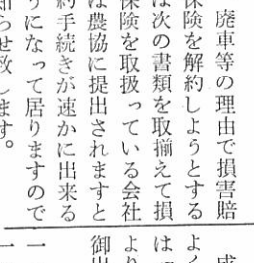 廃車等の理由で損害賠
保険を解約しようとする
は次の書類を取揃えて損
保険を取扱っている会社
は農協に提出されますと
約手続きが速かに出来る
うになって居りますので
知らせ致します。
成
よく
は
より
御出
一
一